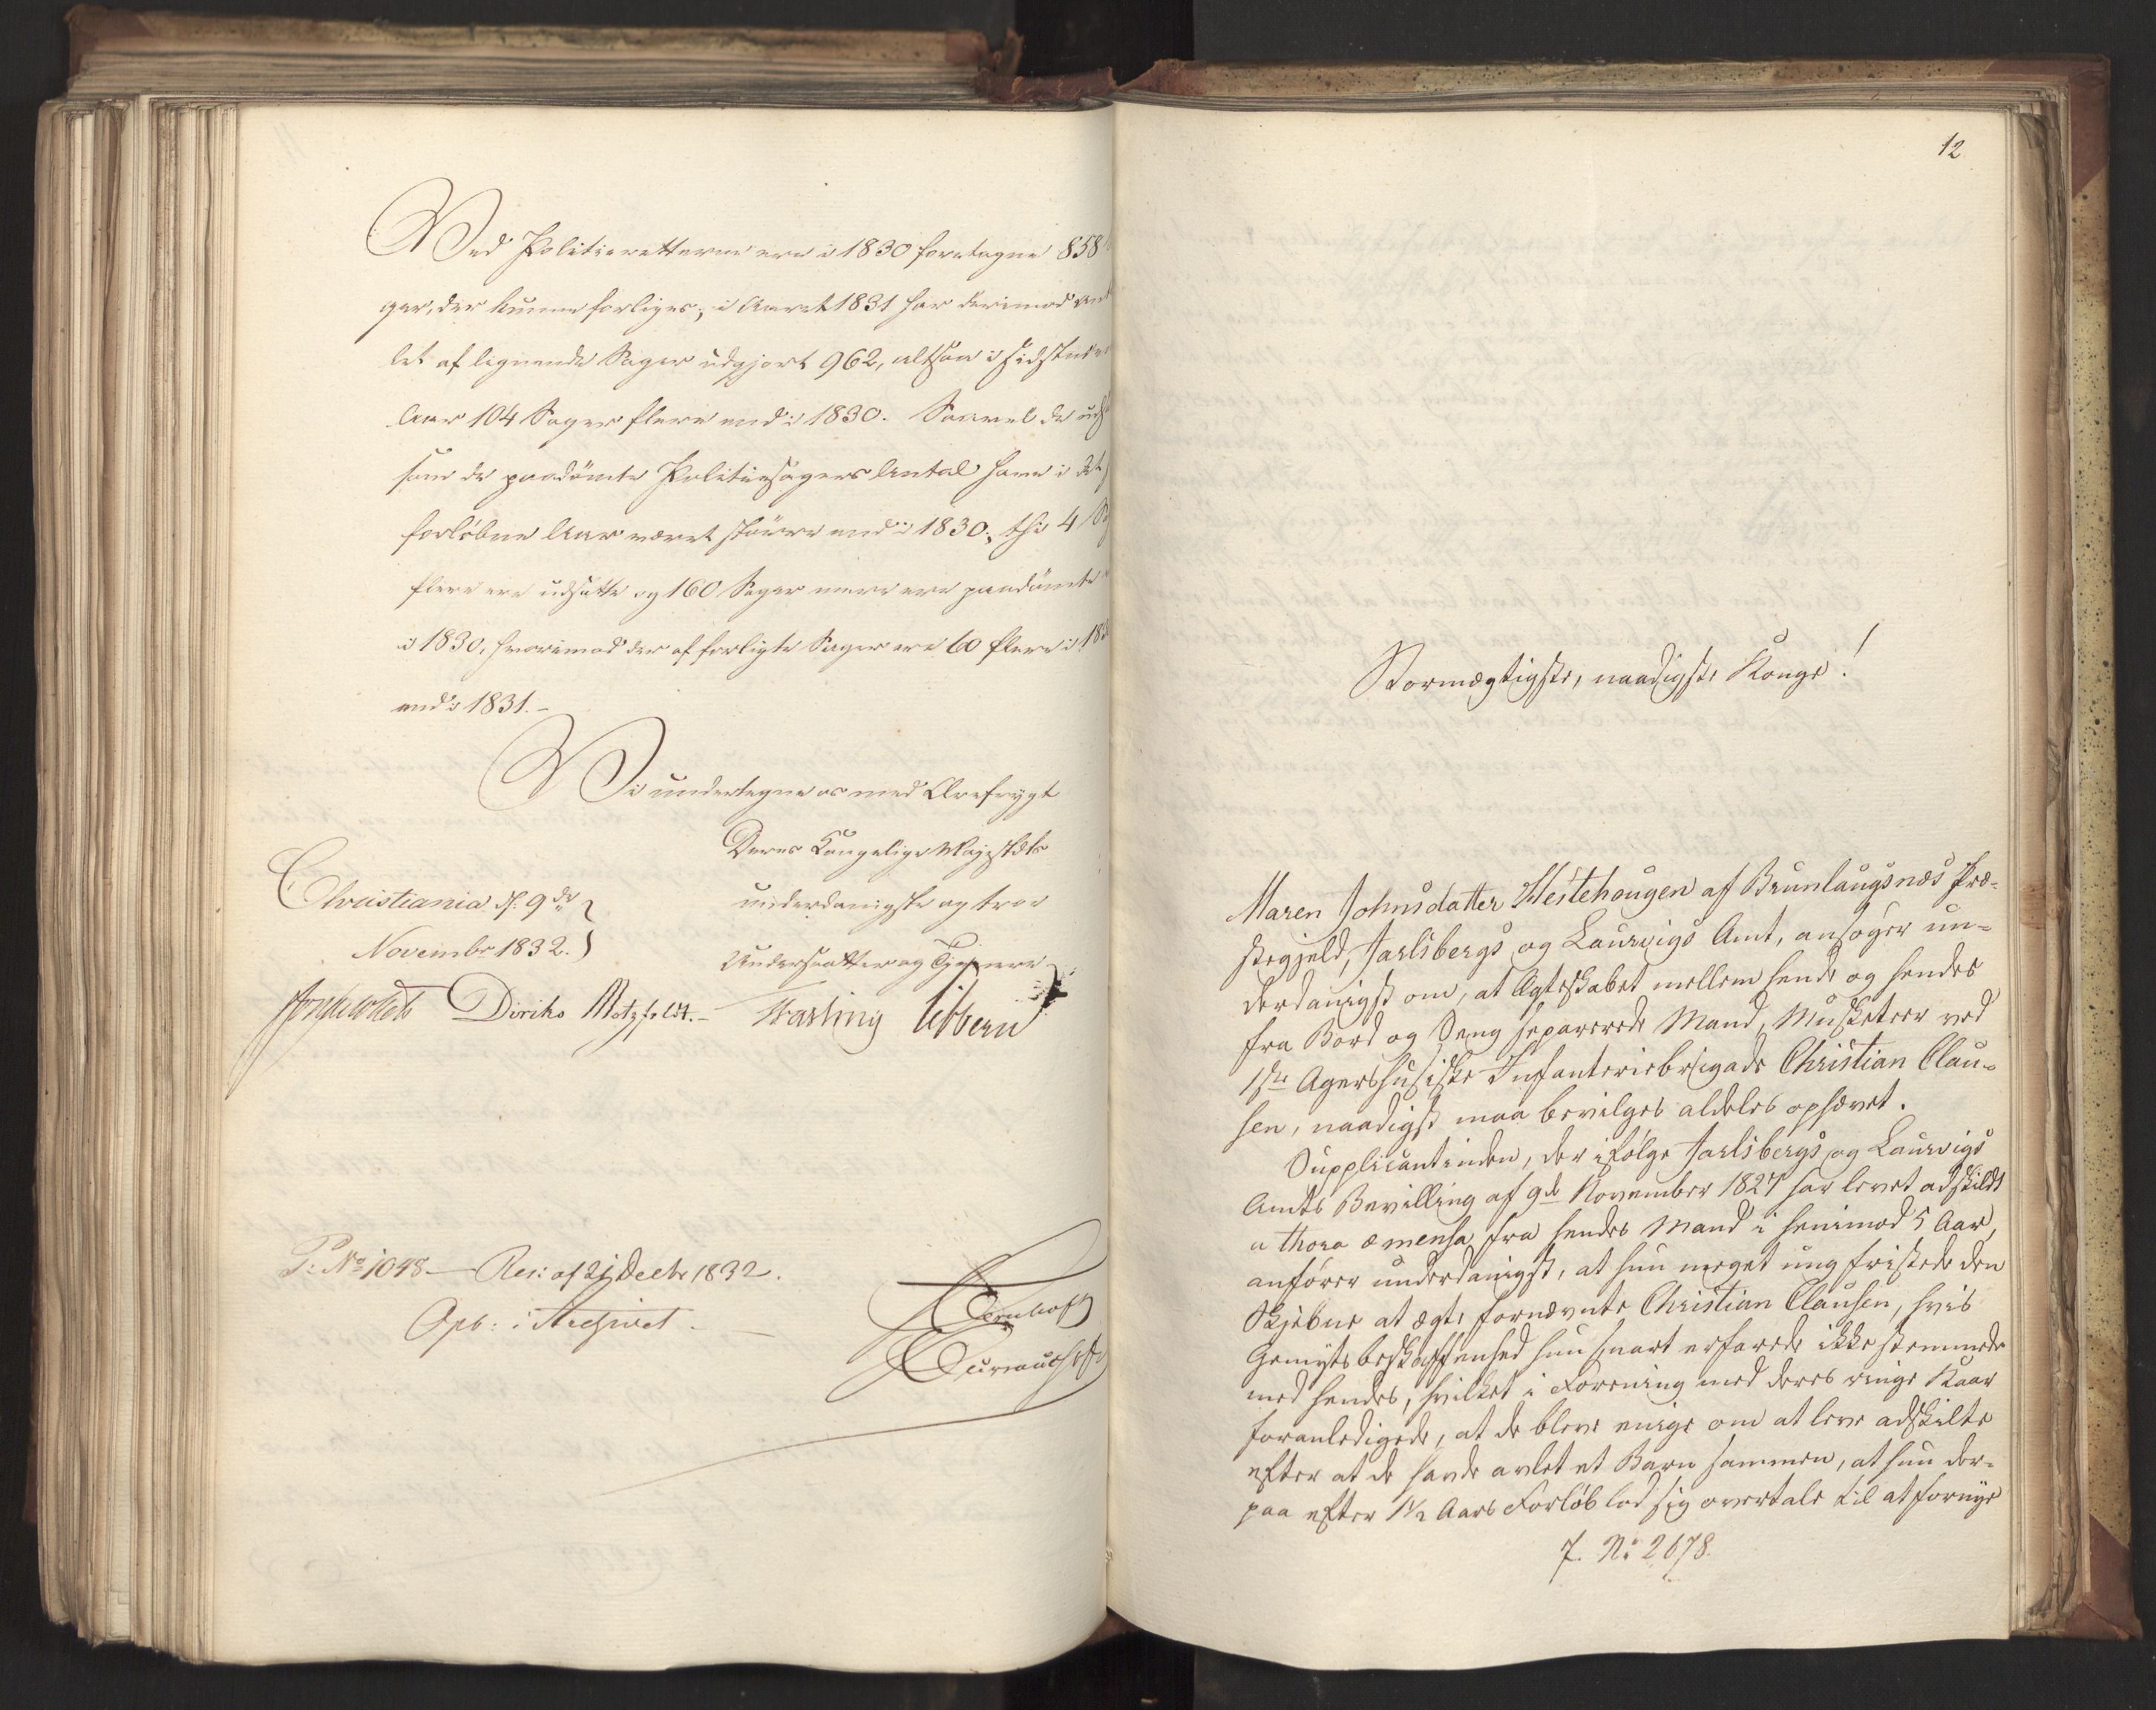 Ved Politieretterne ere i 1830 foretagne 858
ger, der kunne forliges; i Aaret 1831 har derimod
let af lignende Sager udgjort 962, altsaa i sidstnævn
Aar 104 Sager flere end i 1830. Saavel de
som de paadömte Politiesagers Antal have i det
forløbne Aar været större end i 1830; thi 4
flere ere udsatte og 160 Sager mere ere paadömte
i 1830, hvorimod der af forligte Sager ere 60 flere i
end i 1831.-
Vi undertegne os med Ærefrygt
Deres Kongelige Majestæts
underdanigste og troe
Undersaatter og Tjenere
Christiania d: 9de
Novembr 1832.
Diriks Motzfeldt.- Fasting Sibbern
P: No 1048 - Res: af 21 Decbr 1832.
Opb: i Archivet.
12
Stormægtigste, naadigste Konge!
Maren Johnsdatter Hestehougen af Brunlaugsnæs Præ-
stegjeld, Jarlsbergs og Laurvigs Amt, ansøger un-
derdanigst om, at Ægteskabet mellem hende og hendes
fra Bord og Seng separerede Mand, Musketeer ved
1ste Agershusiske Infanteriebrigade Christian Clau-
sen, naadigst maa bevilges aldeles ophævet.
Supplicantinden, der ifølge Jarlsbergs og Laurvigs
Amts Bevilling af 9de November 1827 har levet adskildt
a thoro & mensa fra hendes Mand i henimod 5 Aar,
anfører underdanigst, at hun meget ung fristede den
Skjebne at ægte fornævnte Christian Clausen, hvis
Gemyts beskaffenhed hun snart erfarede ikke stemmede
med hendes, hvilket i Forening med deres ringe Kaar
foranledigede, at de bleve enige om at leve adskilte
efter at de havde avlet et Barn sammen, at hun der-
paa efter 1½ Aars Forløb lod sig overtale til at fornye
J. No 2678.